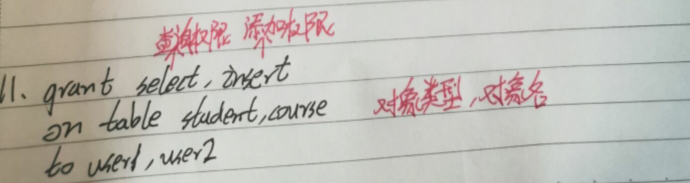 查询权限 添加权限
11. grant select, insert
on table student, course 对象类型, 对象名
to user1, user2